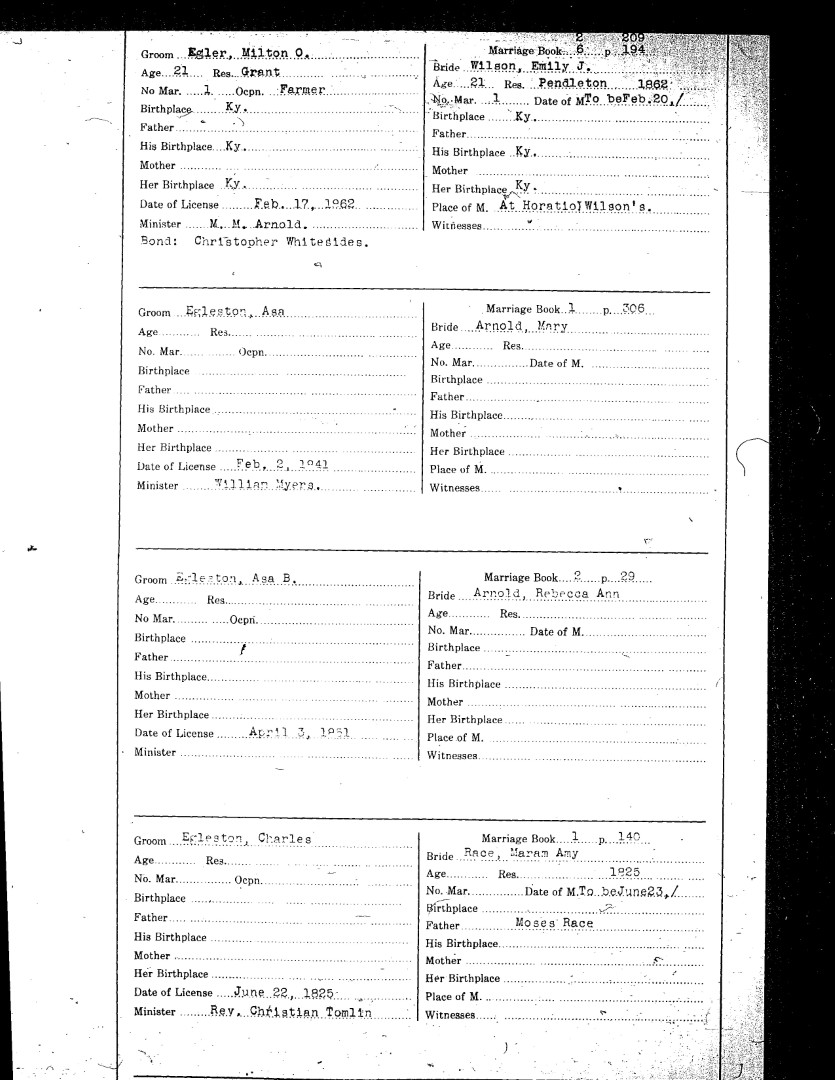 2 209
Groom Egler, Milton O. Marriage Book 6 p. 194
Age 21 Res. Grant Bride Wilson, Emily J.
No Mar. 1 Ocpn. Farmer Age 21 Res. Pendleton 1862
Birthplace Ky. No. Mar. 1 Date of M To beFeb.20,/
Father Birthplace Ky.
His Birthplace Ky. Father
Mother His Birthplace Ky.
Her Birthplace Ky. Mother
Date of License Feb. 17, 1862 Her Birthplace Ky.
Minister M. M. Arnold. Place of M. At Horatio Wilson's.
Bond: Christopher Whitesides. Witnesses
Groom Egleston, Asa Marriage Book 1 p. 306
Age Res. Bride Arnold, Mary
No. Mar. Ocpn. Age Res.
Birthplace No. Mar. Date of M.
Father Birthplace
His Birthplace Father
Mother His Birthplace
Her Birthplace Mother
Date of License Feb. 2, 1841 Her Birthplace
Minister Willian Myers. Place of M.
Witnesses
Groom Egleston, Asa B. Marriage Book 2 p. 29
Age Res. Bride Arnold, Rebecca Ann
No Mar. Ocpn. Age Res.
Birthplace No. Mar. Date of M.
Father Birthplace
His Birthplace Father
Mother His Birthplace
Her Birthplace Mother
Date of License April 3, 1851 Her Birthplace
Minister Place of M.
Witnesses
Groom Egleston, Charles Marriage Book 1 p. 140
Age Res. Bride Race, Maram Amy
No. Mar. Ocpn. Age Res. 1825
Birthplace No. Mar. Date of M. To beJune23,/
Father Birthplace
His Birthplace Father Moses Race
Mother His Birthplace
Her Birthplace Mother
Date of License June 22, 1825 Her Birthplace
Minister Rev. Christian Tomlin Place of M.
Witnesses